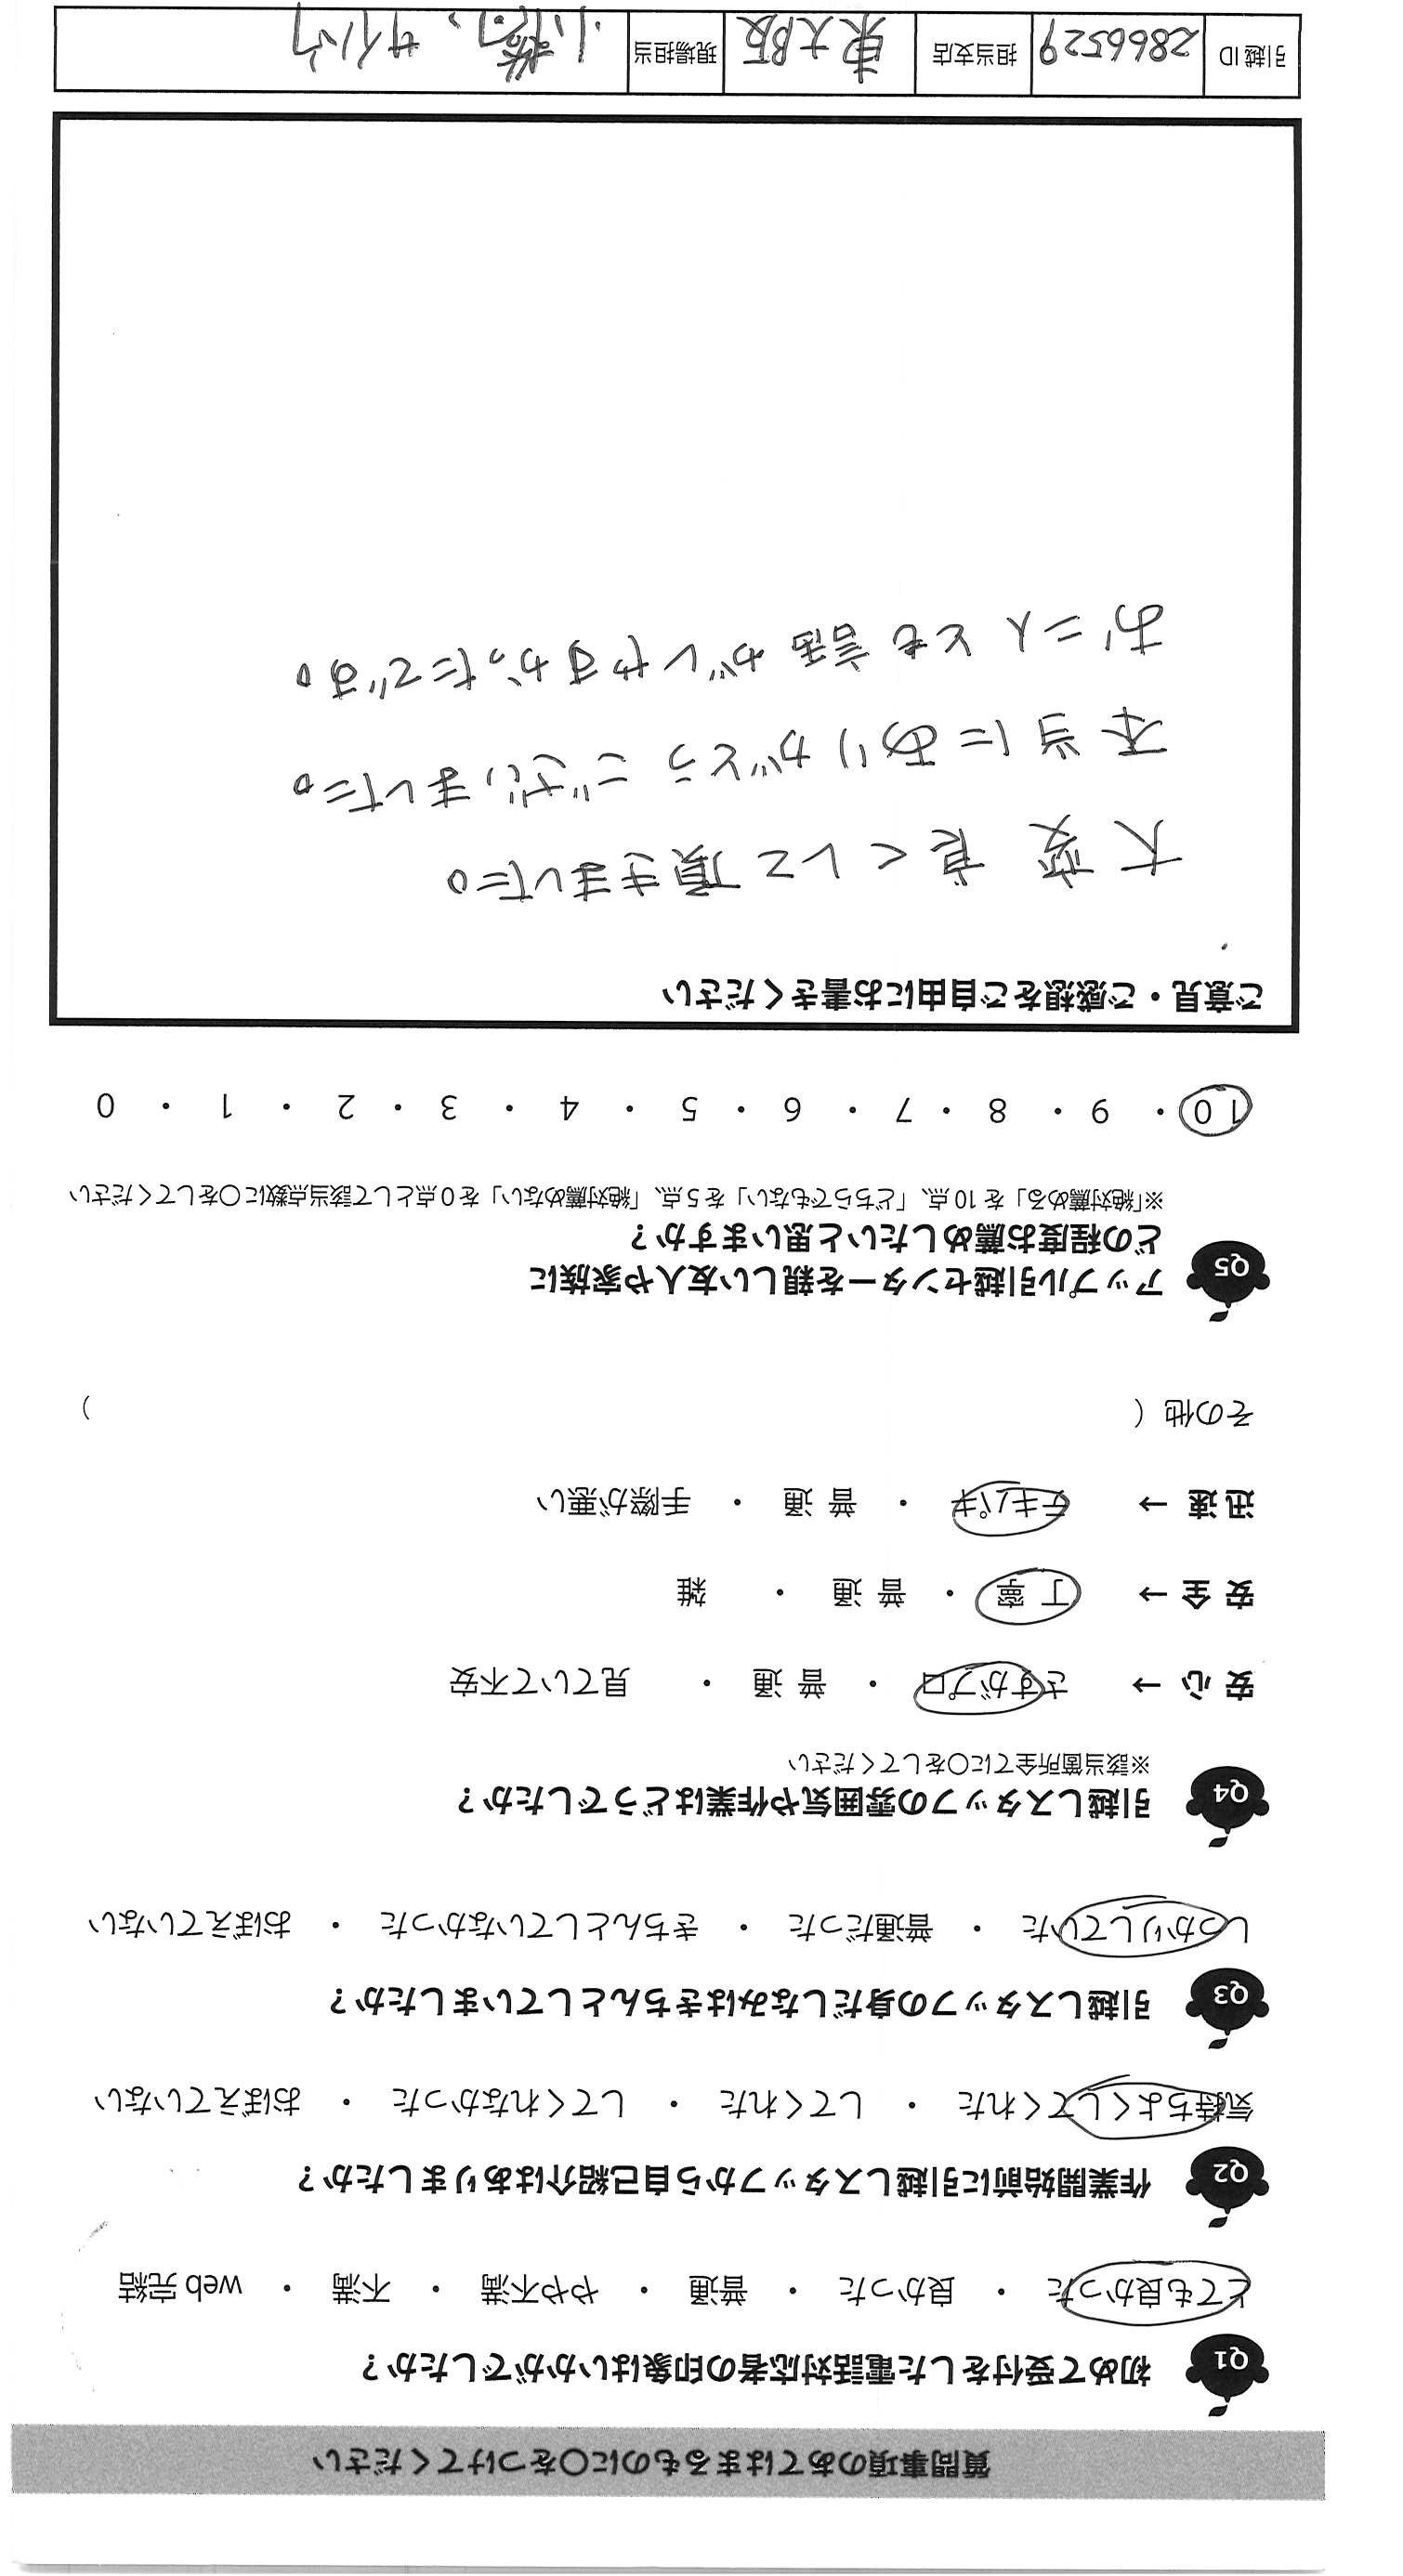 質問事項のあてはまるものに〇をつけてください
Q1 初めて受付をした電話対応者の印象はいかがでしたか？
とても良かった ・ 良かった ・ 普通 ・ やや不満 ・ 不満 ・ web 完結
Q2 作業開始前に引越しスタッフから自己紹介はありましたか？
気持ちよくしてくれた ・ してくれた ・ してくれなかった ・ おぼえていない
Q3 引越しスタッフの身だしなみはきちんとしていましたか？
しっかりしていた ・ 普通だった ・ きちんとしていなかった ・ おぼえていない
Q4 引越しスタッフの雰囲気や作業はどうでしたか？
※該当箇所全てに〇をしてください
安 心 → さすがプロ ・ 普 通 ・ 見ていて不安
安 全 → 丁 寧 ・ 普 通 ・ 雑
迅 速 → テキパキ ・ 普 通 ・ 手際が悪い
その他（ ）
Q5 アップル引越センターを親しい友人や家族に
どの程度お薦めしたいと思いますか？
※「絶対薦める」を 10 点、「どちらでもない」を 5 点、「絶対薦めない」を 0 点として該当点数に〇をしてください
10 ・ 9 ・ 8 ・ 7 ・ 6 ・ 5 ・ 4 ・ 3 ・ 2 ・ 1 ・ 0
ご意見・ご感想をご自由にお書きください
大変良くして頂きました。
本当にありがとうございました。
お二人とも話がしやすかったです。
引越 ID 2866529 担当支店 東大阪 現場担当 小橋、サイトウ